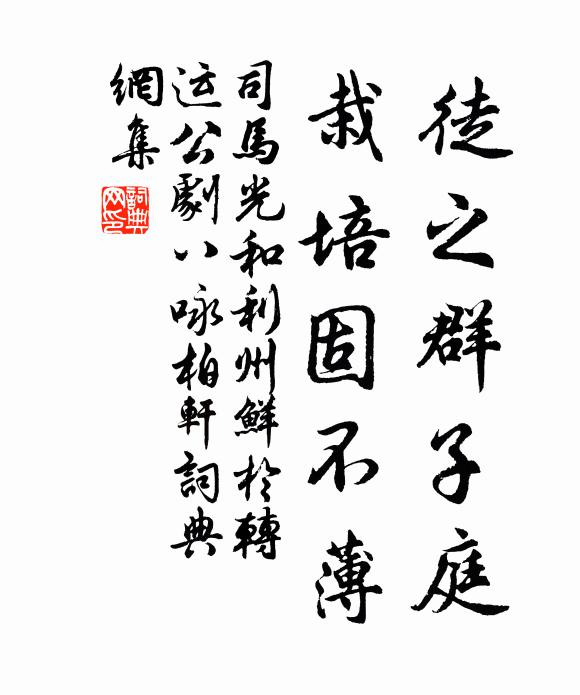 徒之群子庭
栽培固不薄
司馬光和利州鮮於轉
运公劇八咏柏軒詞典
網集
詞典
网印